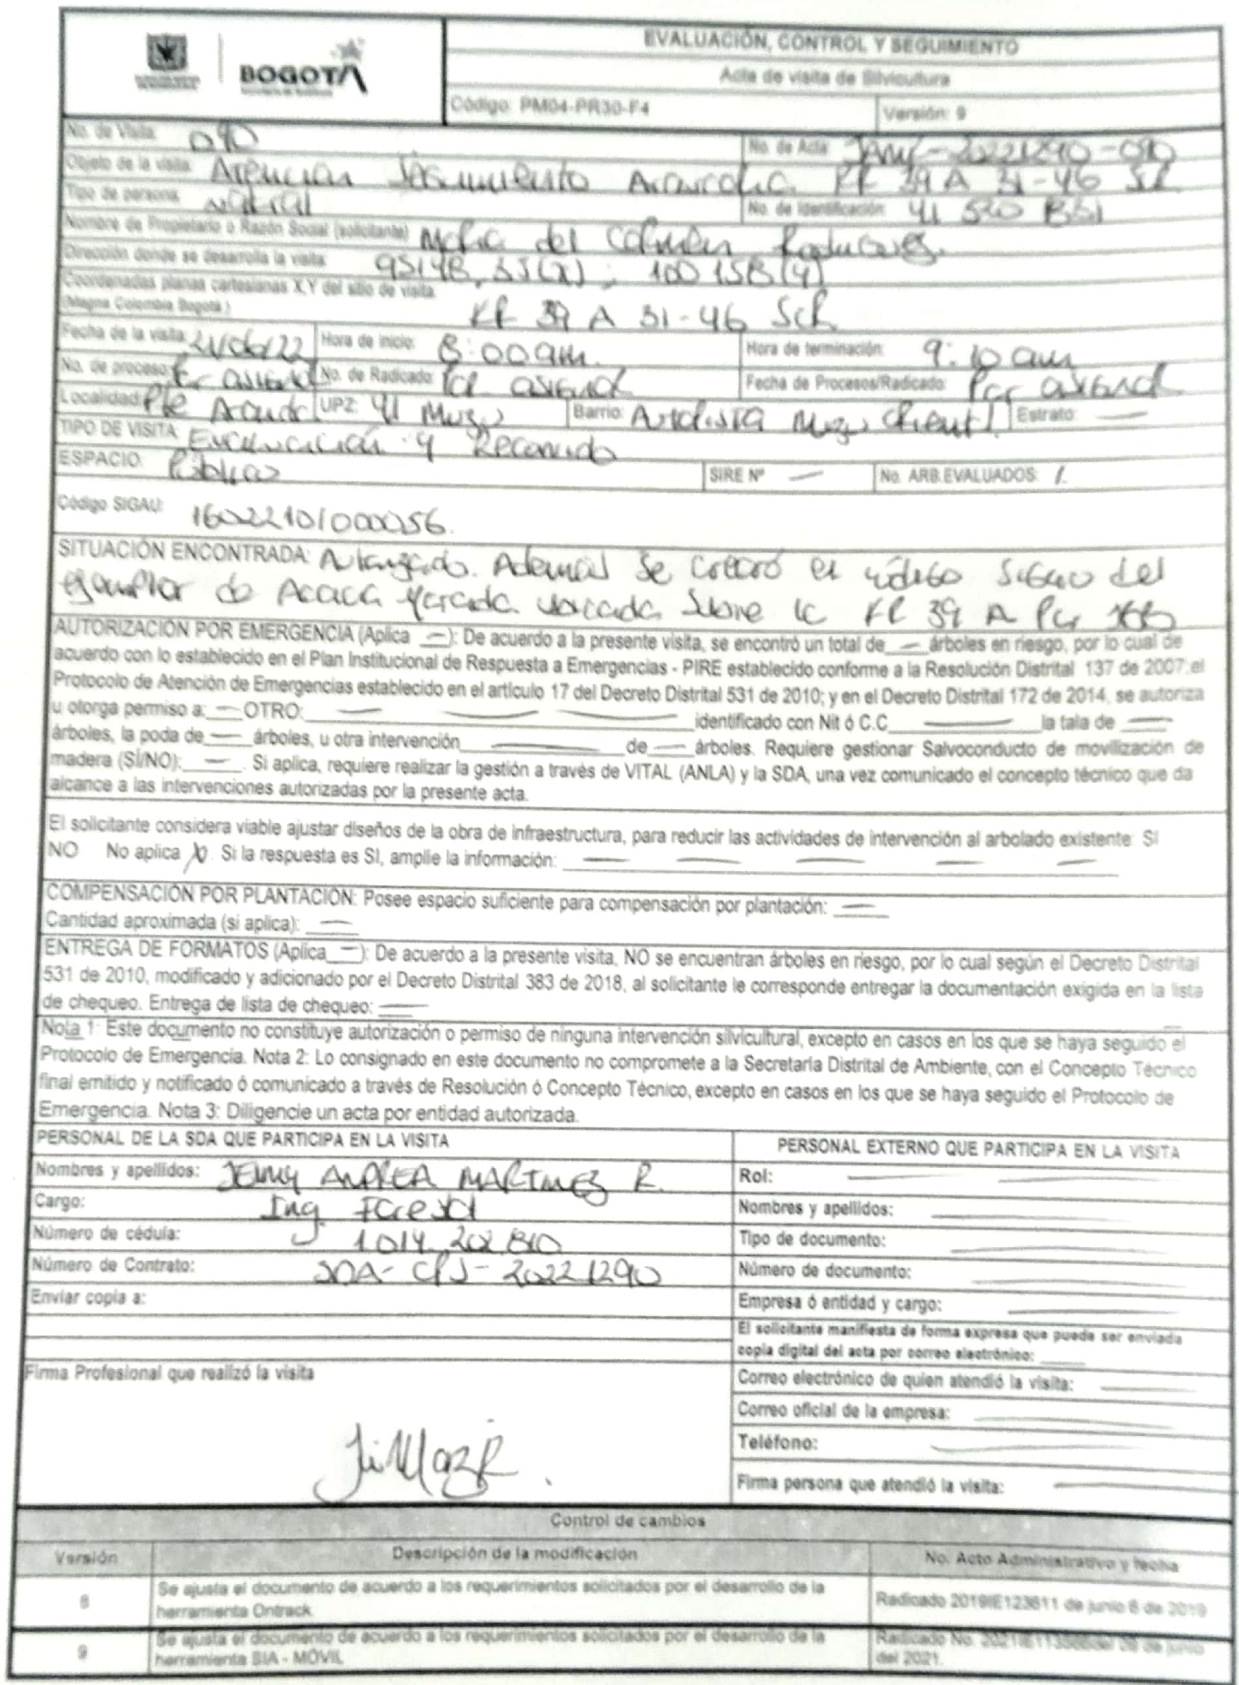 BOGOTÁ
EVALUACIÓN, CONTROL Y SEGUIMIENTO
Acta de visita de Silvicultura
Código: PM04-PR30-F4 Versión: 9
No. de Visita: 090 No. de Acta: JAMR-20221290-090
Objeto de la visita: Atención Seguimiento KR 39 A 31-46 Sur
Tipo de persona: Natural No. de identificación: 41 520 851
Nombre de Propietario o Razón Social (solicitante) Maria del Carmen
Dirección donde se desarrolla la visita: 95148,55(X); 100158(Y)
Coordenadas planas cartesianas X,Y del sitio de visita
(Magna Colombia Bogotá) KR 39 A 31-46 Sur
Fecha de la visita: Hora de inicio: 8:00am. Hora de terminación: 9:10 am
No. de proceso: Por asignar No. de Radicado: Por asignar Fecha de Procesos/Radicado: Por asignar
Localidad: Pte Aranda UPZ: 41 Muzu Barrio: Autopista Muzu Oriental Estrato: —
TIPO DE VISITA: Evaluación y Recorrido
ESPACIO: Público SIRE Nº — No. ARB.EVALUADOS: 1.
Código SIGAU: 16022101000056.
SITUACIÓN ENCONTRADA: Autorizado. Además se el código SIGAU del
ejemplar de Acacia Morada ubicada sobre la KR 39 A
AUTORIZACIÓN POR EMERGENCIA (Aplica —): De acuerdo a la presente visita, se encontró un total de — árboles en riesgo, por lo cual de
acuerdo con lo establecido en el Plan Institucional de Respuesta a Emergencias - PIRE establecido conforme a la Resolución Distrital 137 de 2007;el
Protocolo de Atención de Emergencias establecido en el artículo 17 del Decreto Distrital 531 de 2010; y en el Decreto Distrital 172 de 2014, se autoriza
u otorga permiso a: — OTRO: — — — identificado con Nit ó C.C — la tala de —
árboles, la poda de — árboles, u otra intervención — de — árboles. Requiere gestionar Salvoconducto de movilización de
madera (SÍ/NO): —. Si aplica, requiere realizar la gestión a través de VITAL (ANLA) y la SDA, una vez comunicado el concepto técnico que da
alcance a las intervenciones autorizadas por la presente acta.
El solicitante considera viable ajustar diseños de la obra de infraestructura, para reducir las actividades de intervención al arbolado existente: SI
NO No aplica X. Si la respuesta es SI, amplie la información: — — — — —
COMPENSACIÓN POR PLANTACIÓN: Posee espacio suficiente para compensación por plantación: —
Cantidad aproximada (si aplica): —
ENTREGA DE FORMATOS (Aplica —): De acuerdo a la presente visita, NO se encuentran árboles en riesgo, por lo cual según el Decreto Distrital
531 de 2010, modificado y adicionado por el Decreto Distrital 383 de 2018, al solicitante le corresponde entregar la documentación exigida en la lista
de chequeo. Entrega de lista de chequeo: —
Nota 1: Este documento no constituye autorización o permiso de ninguna intervención silvicultural, excepto en casos en los que se haya seguido el
Protocolo de Emergencia. Nota 2: Lo consignado en este documento no compromete a la Secretaría Distrital de Ambiente, con el Concepto Técnico
final emitido y notificado ó comunicado a través de Resolución ó Concepto Técnico, excepto en casos en los que se haya seguido el Protocolo de
Emergencia. Nota 3: Diligencie un acta por entidad autorizada.
PERSONAL DE LA SDA QUE PARTICIPA EN LA VISITA PERSONAL EXTERNO QUE PARTICIPA EN LA VISITA
Nombres y apellidos: JENNY ANDREA MARTINEZ R. Rol: —
Cargo: Ing. Forestal Nombres y apellidos: —
Número de cédula: 1014 202 810 Tipo de documento: —
Número de Contrato: SDA-CPS-20221290 Número de documento: —
Enviar copia a: Empresa ó entidad y cargo: —
El solicitante manifiesta de forma expresa que puede ser enviada
copia digital del acta por correo electrónico:
Firma Profesional que realizó la visita Correo electrónico de quien atendió la visita: —
Correo oficial de la empresa: —
Teléfono: —
Firma persona que atendió la visita: —
Control de cambios
Versión Descripción de la modificación No. Acto Administrativo y fecha
8 Se ajusta el documento de acuerdo a los requerimientos solicitados por el desarrollo de la
herramienta Ontrack. Radicado 2019IE123611 de junio 6 de 2019
9 Se ajusta el documento de acuerdo a los requerimientos solicitados por el desarrollo de la
herramienta SIA - MÓVIL Radicado No. de junio
del 2021.